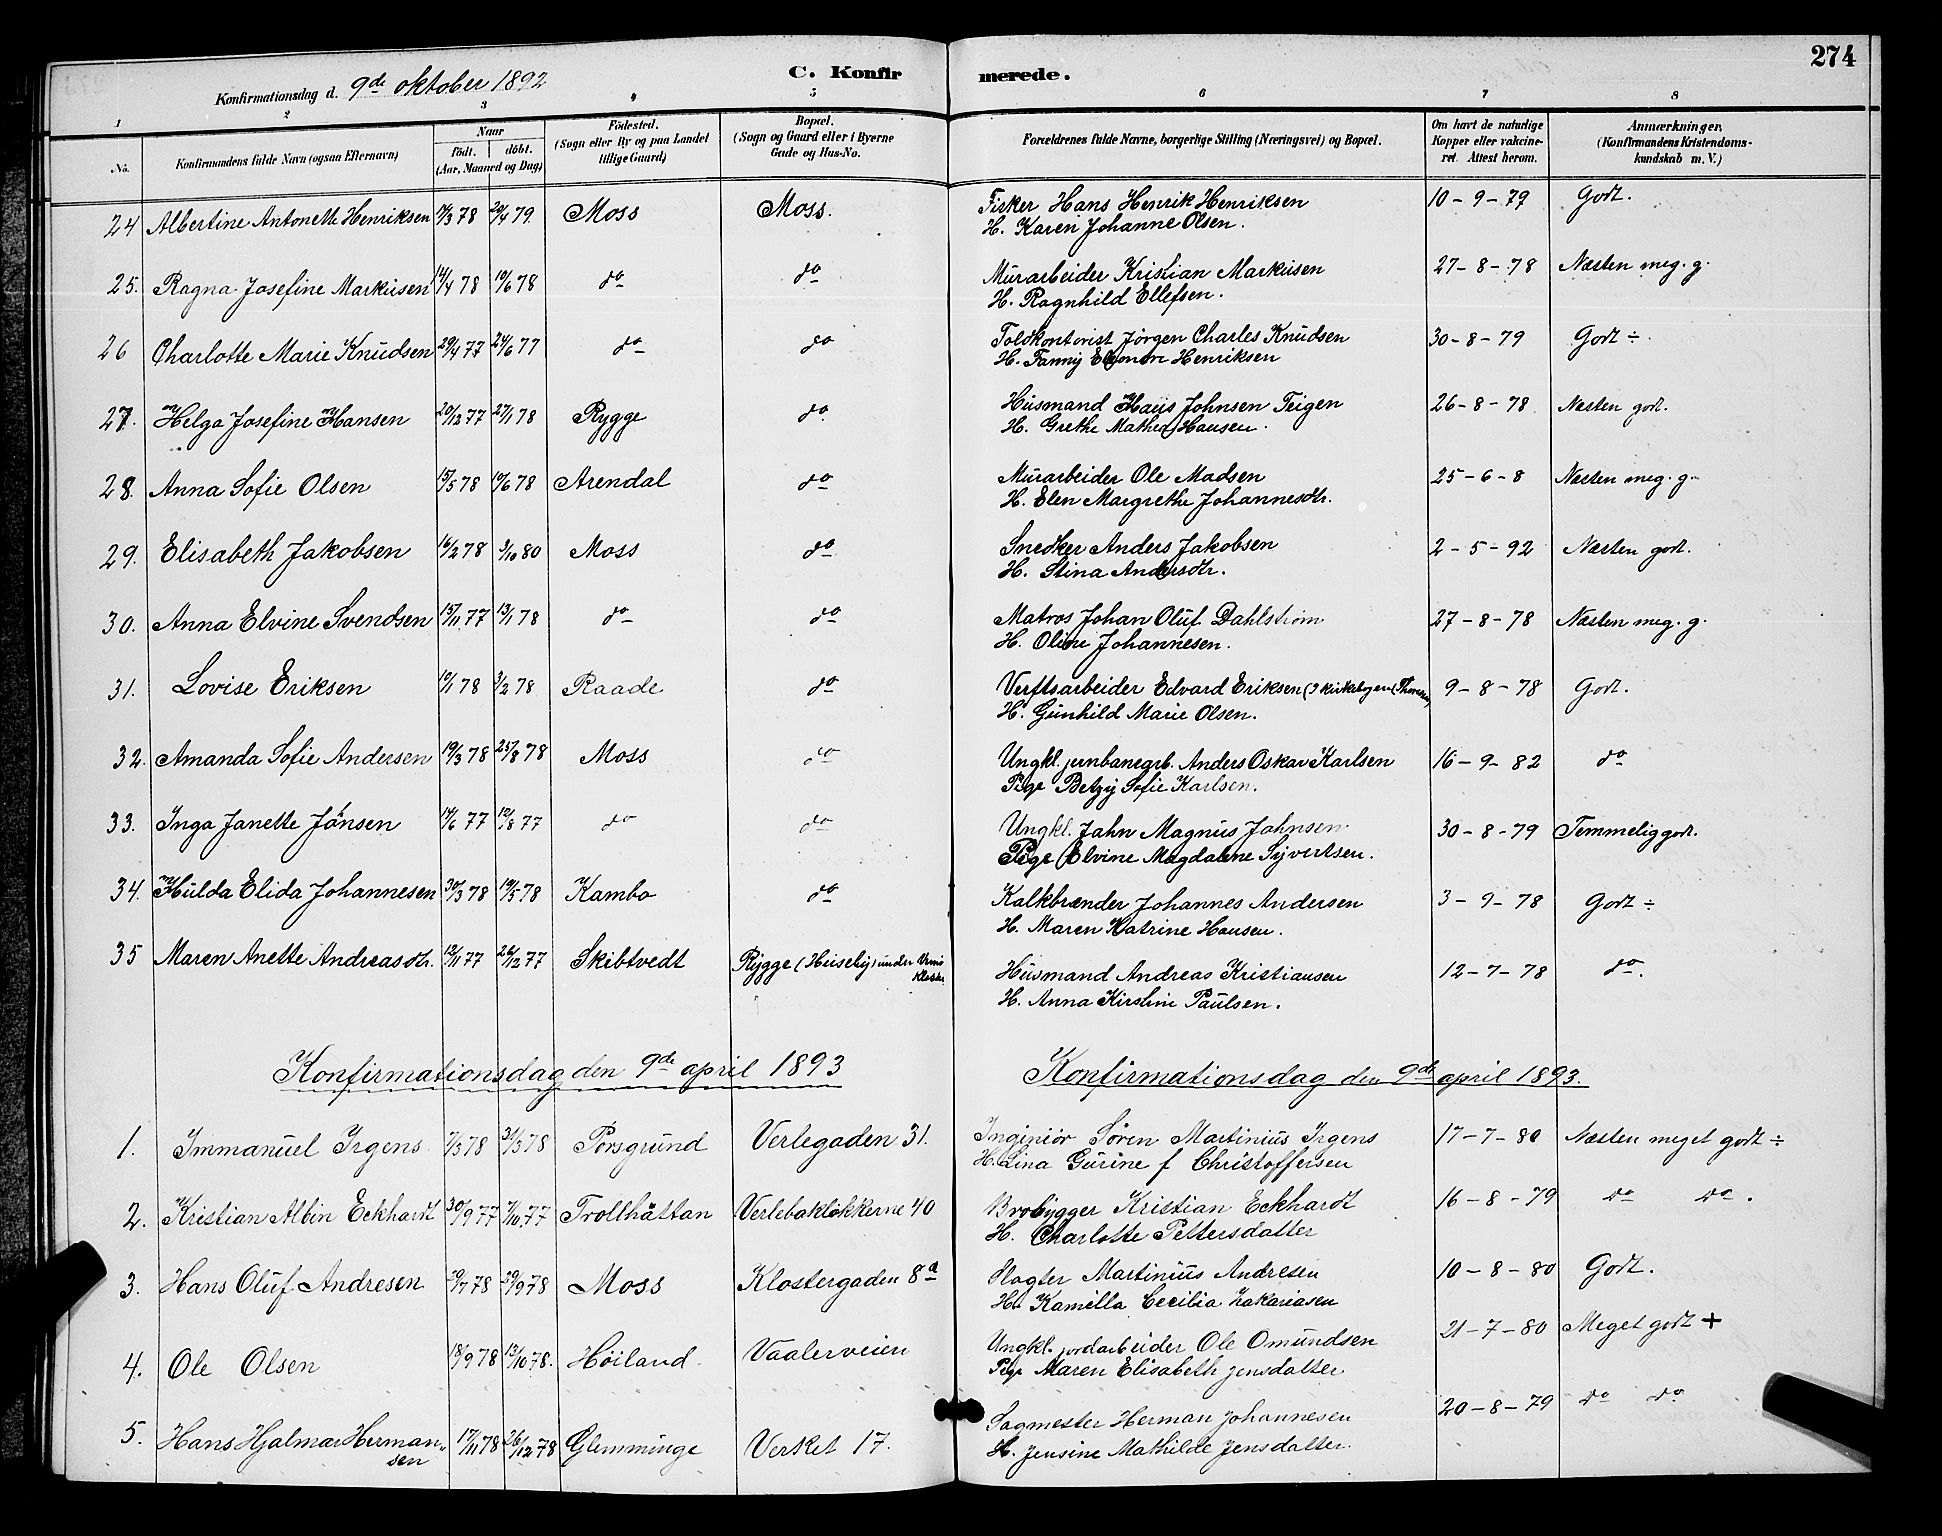 274
C. Konfirmerede.
Konfirmationsdag d. 9de oktober 1892
1 2 3 4 5 6 7 8
No. Konfirmandens fulde Navn (ogsaa Efternavn) Naar födt. döbt. (Aar, Maaned og Dag) Födested. (Sogn eller By og paa Landet tillige Gaard) Bopæl. (Sogn og Gaard eller i Byerne Gade og Hus-No. Forældrenes fulde Navne, borgerlige Stilling (Næringsvei) og Bopæl. Om havt de naturlige Kopper eller vaccineret. Attest herom. Anmærkninger. (Konfirmandens Kristendomskundskab m. V.)
24 Albertine Antonette Henriksen 14/3 78 20/4 79. Moss Moss. Fisker Hans Henrik Henriksen 10-9-79 Godt.
H. Karen Johanne Olsen.
25. Ragna Josefine Markusen 14/4 78 10/6 78 do do Murarbeider Kristian Markusen 27-8-78 Næsten meg. g.
H. Ragnhild Ellefsen.
26 Charlotte Marie Knudsen 29/4 77 24/6 77 do do Toldkontorist Jörgen Charles Knudsen 30-8-79 Godt ÷
H. Fanny Eleonore Henriksen
27. Helga Josefine Hansen 20/12 77 27/1 78 Rygge do Husmand Hans Johnsen Teigen 26-8-78 Næsten godt.
H. Grethe Mathea Hansen.
28. Anna Sofie Olsen 15/5 78 10/6 78 Arendal do Murarbeider Ole Madsen 25-6-8 Næsten meg. g.
H. Elen Margrethe Johannesdtr.
29. Elisabeth Jakobsen 16/2 78 3/10 80 Moss do Snedker Anders Jakobsen 2-5-92 Næsten godt.
H. Stina Andersdtr.
30. Anna Elvine Svendsen 15/11 77 13/1 78 do do Matros Johan Oluf Dahlström 27-8-78 Næsten meg. g.
H. Oline Johannesen.
31. Lovise Eriksen 10/1 78 3/2 78 Raade do Verftsarbeider Edvard Eriksen (I kirkebogen: 9-8-78 Godt.
H. Gunhild Marie Olsen.
32. Amanda Sofie Andersen 19/3 78 25/8 78 Moss do Ungkl. jernbanearb. Anders Oskar Karlsen 16-9-82 do
Pige Betzy Sofie Karlsen.
33. Inga Janette Jönsen 14/6 77 12/8 77 do do Ungkl. Jahn Magnus Johnsen 30-8-79 Temmelig godt.
Pige Elvine Magdalene Syvertsen.
34. Hulda Elida Johannesen 30/3 78 19/5 78 Kambo do Kalkbrænder Johannes Andersen 3-9-78 Godt ÷
H. Maren Katrine Hansen.
35 Maren Anette Andreasdtr. 12/11 77 26/12 77 Skibtvedt Rygge (Huseby) under Kloster Husmand Andreas Kristiansen 12-7-78 do.
H. Anna Kirstine Paulsen.
Konfirmationsdag den 9de april 1893 Konfirmationsdag den 9de april 1893.
1. Immanuel Irgens 7/3 78 31/3 78 Porsgrund Verlegaden 31. Inginiör Sören Martinius Irgens 17-7-80 Næsten meget godt ÷
H. Lina Gurine f Christoffersen
2. Kristian Albin Eckhardt 30/9 77 7/10 77 Trollhättan Verlebaklökkerne 40 Brobygger Kristian Eckhardt 16-8-79 do do.
H. Charlotte Pettersdatter
3. Hans Oluf Andresen 20/7 78 29/9 78 Moss Klostergaden 8a Slagter Martinius Andresen 10-8-80 Godt.
H. Kamilla Cecilia Zakariasen
4. Ole Olsen 18/9 78 13/10 78. Höiland. Vaalerveien Ungkl. jordarbeider Ole Omundsen 21-7-80 Meget godt +
Pige Maren Elisabeth Jensdatter
5. Hans Hjalmar Hermansen 17/11 78 26/12 78 Glemminge Verket 17. Sagmester Herman Johannesen 20-8-79 do do
H. Jensine Mathilde Jensdatter.